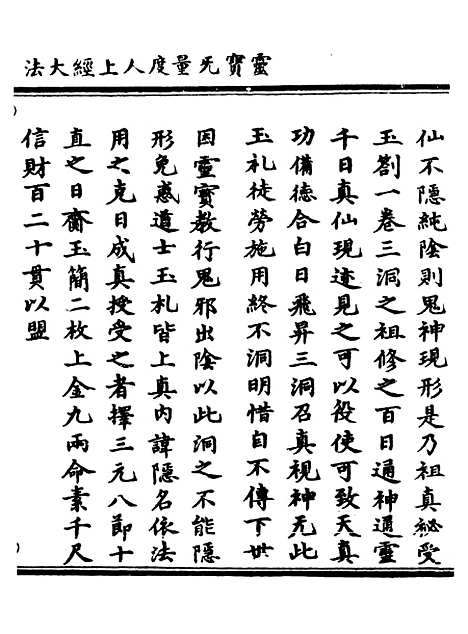 靈寳旡量度人上經大法
仙不隱純陰則鬼神現形是乃祖真祕受
玉劄一卷三洞之祖修之百日通神通靈
千日真仙現迹見之可以役使可致天真
功備德合白日飛昇三洞召真視神旡此
玉礼徒勞施用終不洞明惜自不傳下世
因靈寳教行鬼邪出陰以此洞之不能隱
形免惑道士玉札皆上真内諱隱名依法
用之克日成真授受之者擇三元八節十
直之日齋玉簡二枚上金九兩命素千尺
信財百二十貫以盟